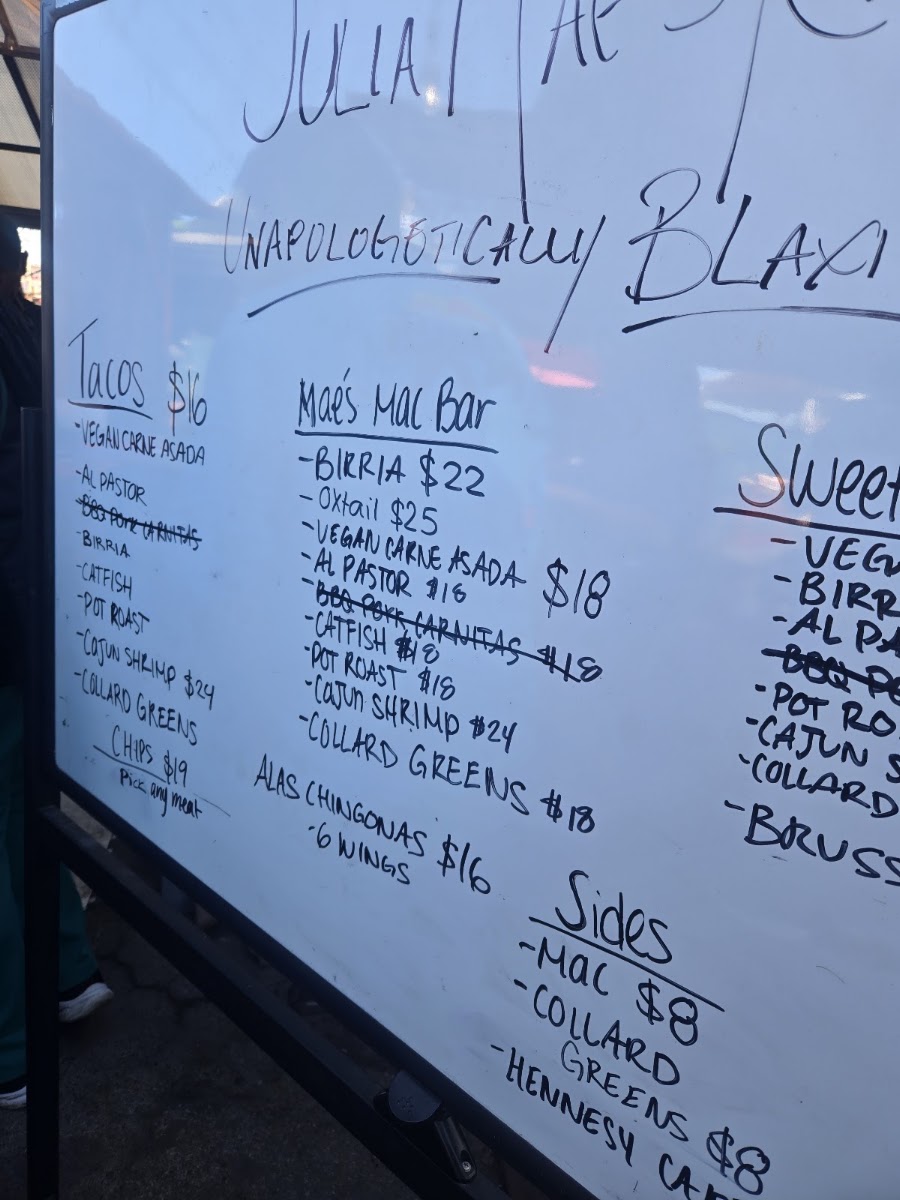 JULIA MAE'S
UNAPOLOGETICALLY BLAXI
Tacos $16
-VEGAN CARNE ASADA
-AL PASTOR
-BBQ PORK CARNITAS
-BIRRIA
-CATFISH
-POT ROAST
-CAJUN SHRIMP $24
-COLLARD GREENS
CHIPS $19
Pick any meat
Mae's Mac Bar
-BIRRIA $22
-Oxtail $25
-VEGAN CARNE ASADA $18
-AL PASTOR $18
-BBQ PORK CARNITAS $18
-CATFISH $18
-POT ROAST $18
-CAJUN SHRIMP $24
-COLLARD GREENS $18
ALAS CHINGONAS $16
-6 WINGS
Sweet
-VEGA
-BIRR
-AL PA
-BBQ PO
-POT RO
-CAJUN S
-COLLARD
-BRUSS
Sides
-MAC $8
-COLLARD
GREENS $8
-HENNESY CA